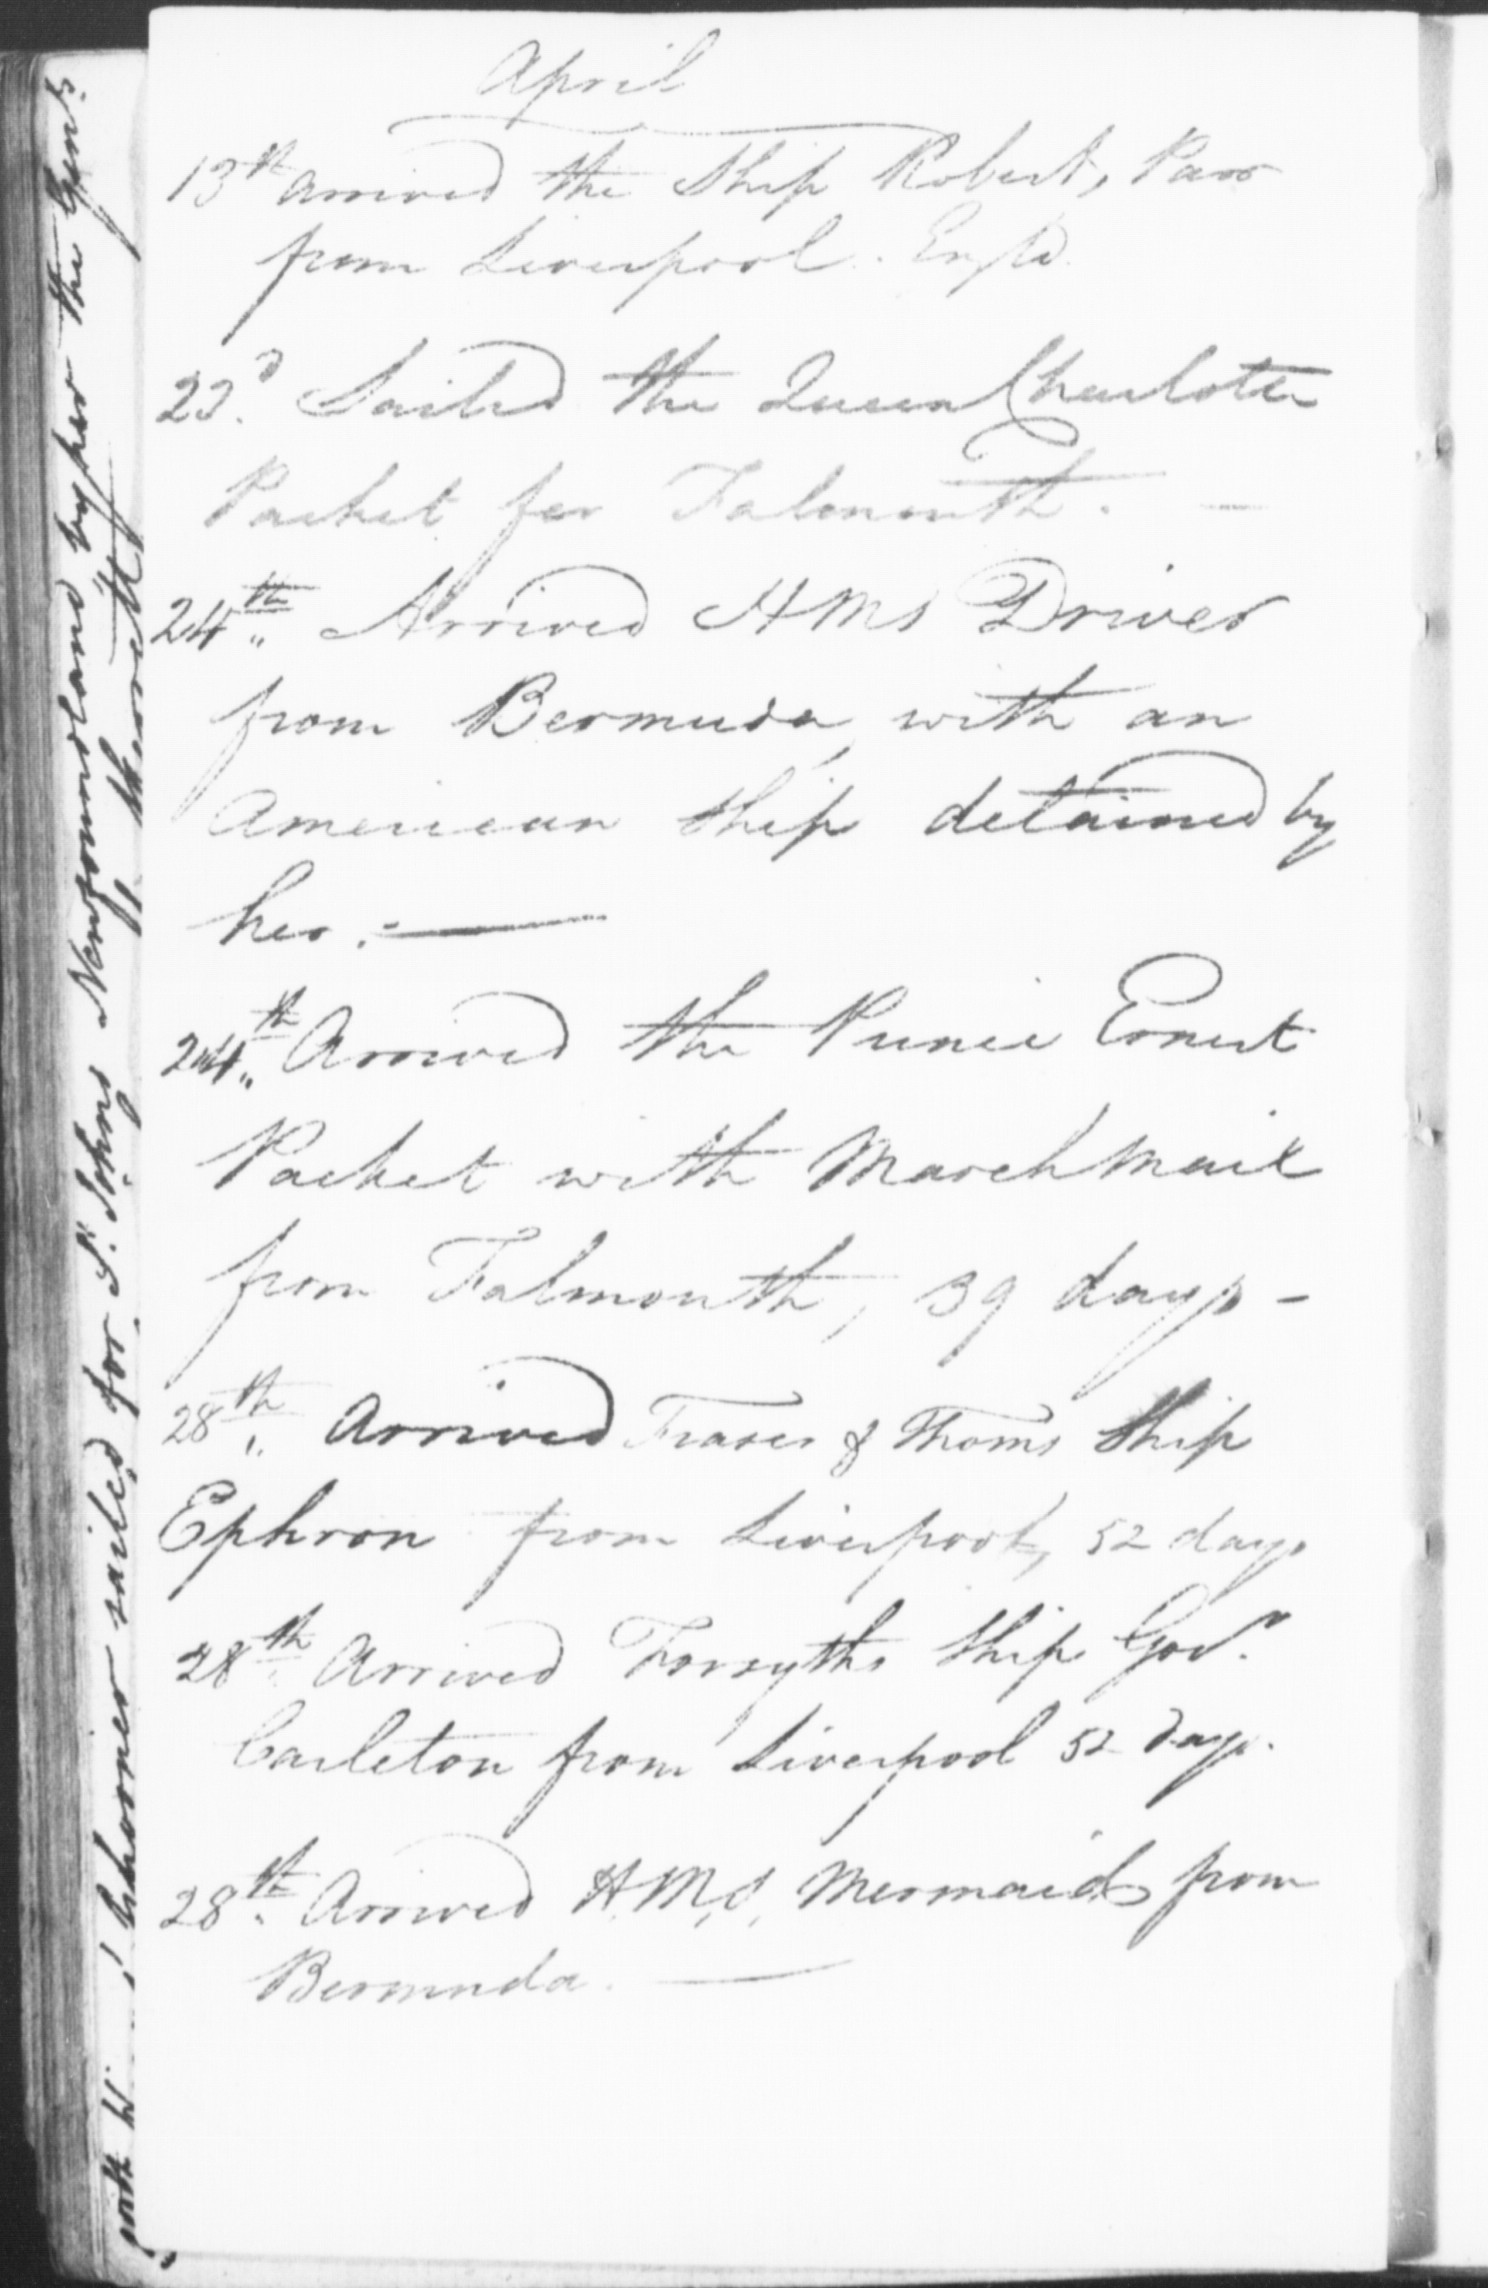 April
13th arrived the Ship Robert, Parr
from Liverpool. Engld.
22d. Sailed the Queen Charlotte
Packet for Falmouth. —
24th Arrived HMS Driver
from Bermuda, with an
American Ship detained by
her. —
24th Arrived the Prince Ernest
Packet with March Mail
from Falmouth, 39 days -
28th Arrived Fraser & Thoms Ship
Ephron from Liverpool, 52 days
28th Arrived Forsyths Ship Govr.
Carleton from Liverpool 52 days.
28th Arrived H.M.S. Mermaid from
Bermuda. —
Schooner sailed for St. Johns Newfoundland by her the Genl.
therewith